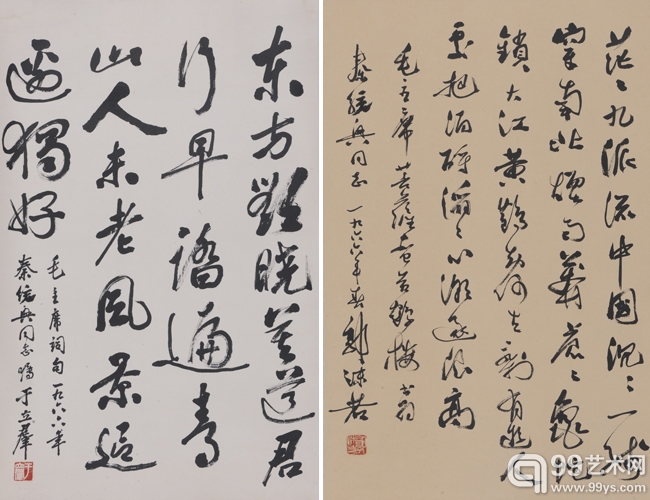 东方欲晓莫道君
行早踏遍青
山人未老风景這
邊獨好
毛主席词句一九六六年
秦统兴同志嘱于立群
茫々九派流中國沉々一线
穿南北烟雨莽苍々龟蛇
锁大江黄鹤知何去剩有遊人
处把酒酹滔々心潮逐浪高
毛主席菩萨蛮黄鹤楼书为
秦统兴同志一九六六年春郭沫若
99艺术网
www.99ys.com